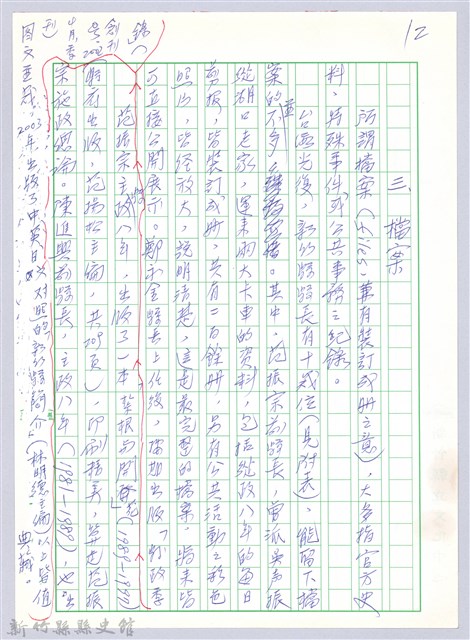 12
三、檔案
所謂檔案(File),兼有裝訂成冊之意,大多指官方史
料、特殊事件或公共事務之紀錄。
台灣光復後,新竹縣縣長有十幾位(見附表),能留下檔
案的並不多,其中,范振宗前縣長,曾派吳聲振
從湖口老家,運來兩大卡車的資料,包括從政八年的每日
剪報,皆裝訂成冊,共有二百餘冊,另有公共活動之彩色
照片,皆經放大,說明清楚,這是最完整的檔案,將來皆
可直接公開展示。鄭永金縣長上任後,擴期出版「縣政季
錦」(創刊號2002年 月
范振宗主政八年,出版了一本草根與開花(1989-1997)
縣府出版,范揚松主編,共 頁),印刷精美,算是范振
宗施政總論。陳進興前縣長,主政八年(1981-1989),也出
刊圖文並茂,2003年出版了中英日文對照的新竹縣簡介(林明德主編)以上皆值
典藏。
新竹縣縣史館